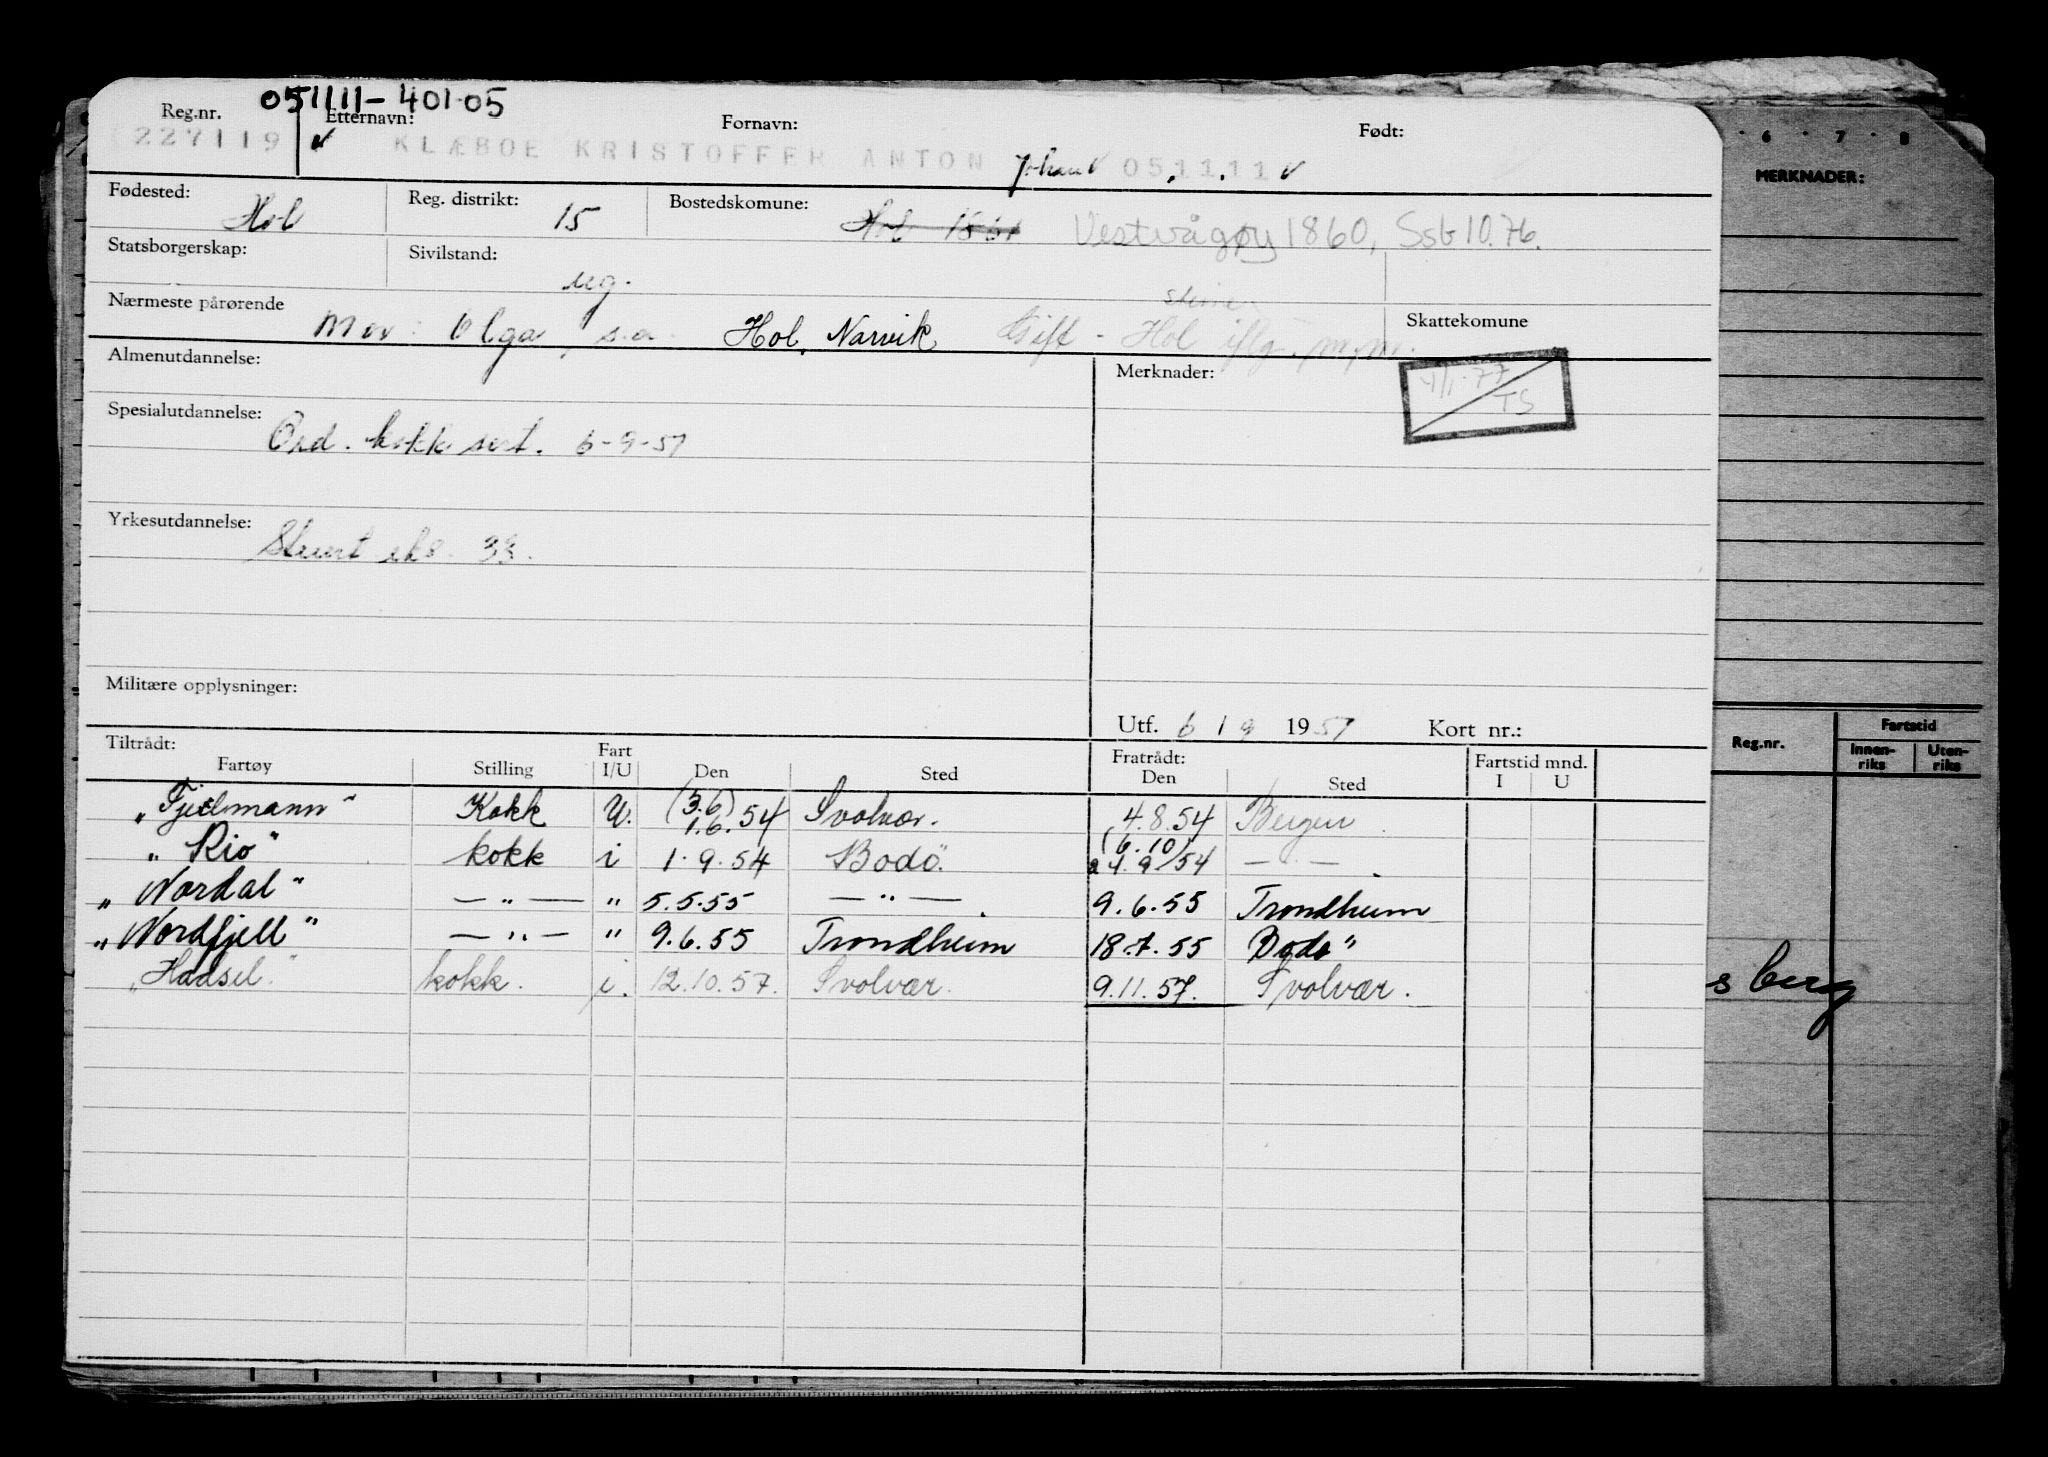 051111-401.05
Reg.nr. Etternavn: Fornavn: Født:
227119 KLÆBOE KRISTOFFER ANTON Johan 05.11.11
Fødested: Hol Reg. distrikt: 15 Bostedskomune: Hol Vestvågøy 1860, Ssb 10.76.
Statsborgerskap: Sivilstand: ug.
Nærmeste pårørende Mor: Olga, s.a. Hol, Narvik Gift - Hol iflg. m.m. Skattekomune
Almenutdannelse: Merknader: 4/1-77 TS
Spesialutdannelse: Ord. kokk sert. 6-9-51
Yrkesutdannelse: Stuert eks. 33.
Militære opplysninger:
Utf. 6 / 9 1951 Kort nr.:
Tiltrådt: Fart Fratrådt: Fartstid mnd.
Fartøy Stilling I/U Den Sted Den Sted I U
„Fjellmann" Kokk U. (3.6) 1.6.54 Svolvær. 4.8.54 Bergen
„Rio" kokk i 1.9.54 Bodö. (6.10) 24.9.54 — " —
„Nordal" — " — " 5.5.55 — " — 9.6.55 Trondheim
„Nordfjell" — " — " 9.6.55 Trondheim 18.7.55 Bodö
„Hadsel" kokk. i. 12.10.57. Svolvær. 9.11.57. Svolvær.
6 7 8
MERKNADER:
Reg.nr. Fartstid
Innen-riks Uten-riks
sberg